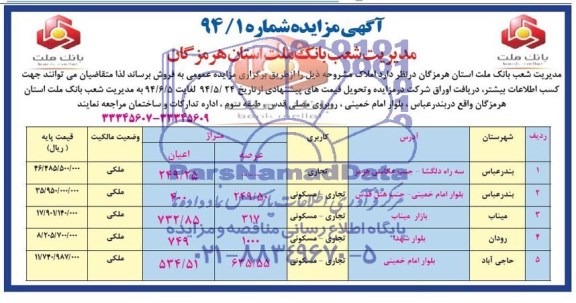 آگهی مزایده شماره ۹۴/۱
مدیریت شعب بانک ملت استان هرمزگان
بانک ملت
بانک ملت
مدیریت شعب بانک ملت استان هرمزگان درنظر دارد املاک مشروحه ذیل را ازطریق برگزاری مزایده عمومی به فروش برساند لذا متقاضیان می توانند جهت
کسب اطلاعات بیشتر، دریافت اوراق شرکت درمزایده و تحویل قیمت های پیشنهادی ازتاریخ ۹۴/۵/۲۴ لغایت ۹۴/۶/۵ به مدیریت شعب بانک ملت استان
هرمزگان واقع دربندرعباس ، بلوار امام خمینی ، روبروی مصلی قدس ، طبقه سوم ، اداره تدارکات و ساختمان مراجعه نمایند
۳۳۳۴۵۶۰۷-۳۳۳۴۵۶۰۹
ردیف شهرستان آدرس کاربری متراژ وضعیت مالکیت قیمت پایه (ریال)
عرصه اعیان
۱ بندرعباس سه راه دلگشا - جنب تجاری ۲۴۹/۲۵ ملکی ۴۶/۴۸۵/۵۰۰/۰۰۰
۲ بندرعباس بلوار امام خمینی - جنب هتل قدس تجاری - مسکونی ۲۴۹/۵ ملکی ۳۵/۹۵۰/۰۰۰/۰۰۰
۳ میناب بازار میناب تجاری - مسکونی ۳۱۷ ۷۳۲/۸۵ ملکی ۱۷/۹۰۱/۱۴۰/۰۰۰
۴ رودان بلوار شهدا تجاری - مسکونی ۱۰۰۰ ۷۴۹ ملکی ۸/۲۰۵/۷۰۰/۰۰۰
۵ حاجی آباد بلوار امام خمینی تجاری - مسکونی ۶۳۵/۵۵ ۵۳۴/۵۱ ملکی ۱۱/۷۴۰/۹۸۷/۰۰۰
ParsNamadData
پایگاه اطلاع رسانی مناقصه و مزایده
۰۲۱-۸۸۳۴۹۶۷۰-۵